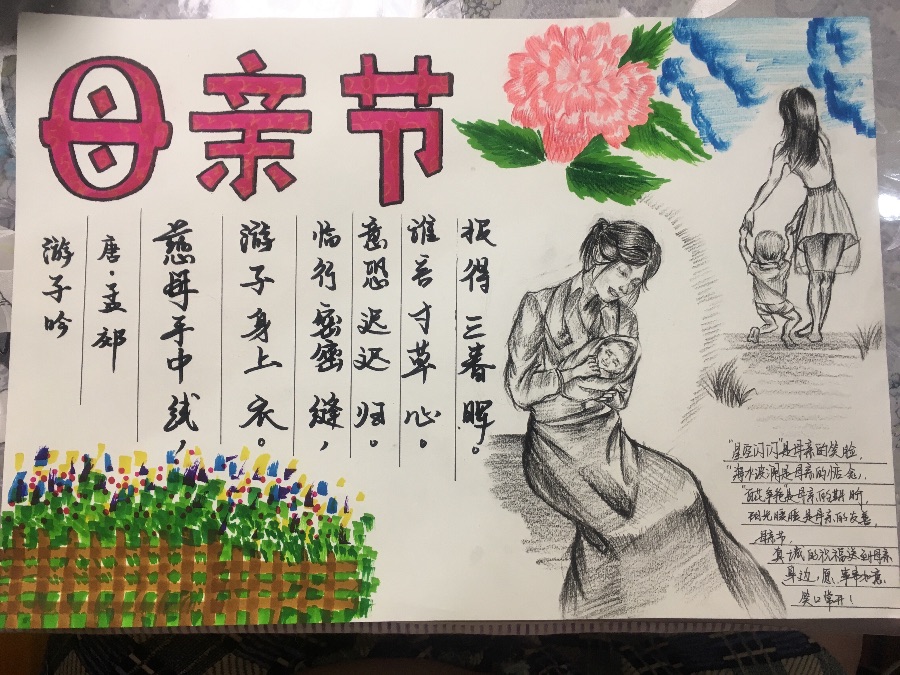 母亲节
游子吟
唐·孟郊
慈母手中线,
游子身上衣。
临行密密缝,
意恐迟迟归。
谁言寸草心。
报得三春晖。
"星星闪闪"是母亲的笑脸,
"海水波澜是母亲的惦念,
"百花争艳"是母亲的期盼,
阳光暖暖是母亲的友善,
母亲节,
真诚的祝福送到母亲
身边,愿事事如意,
笑口常开!